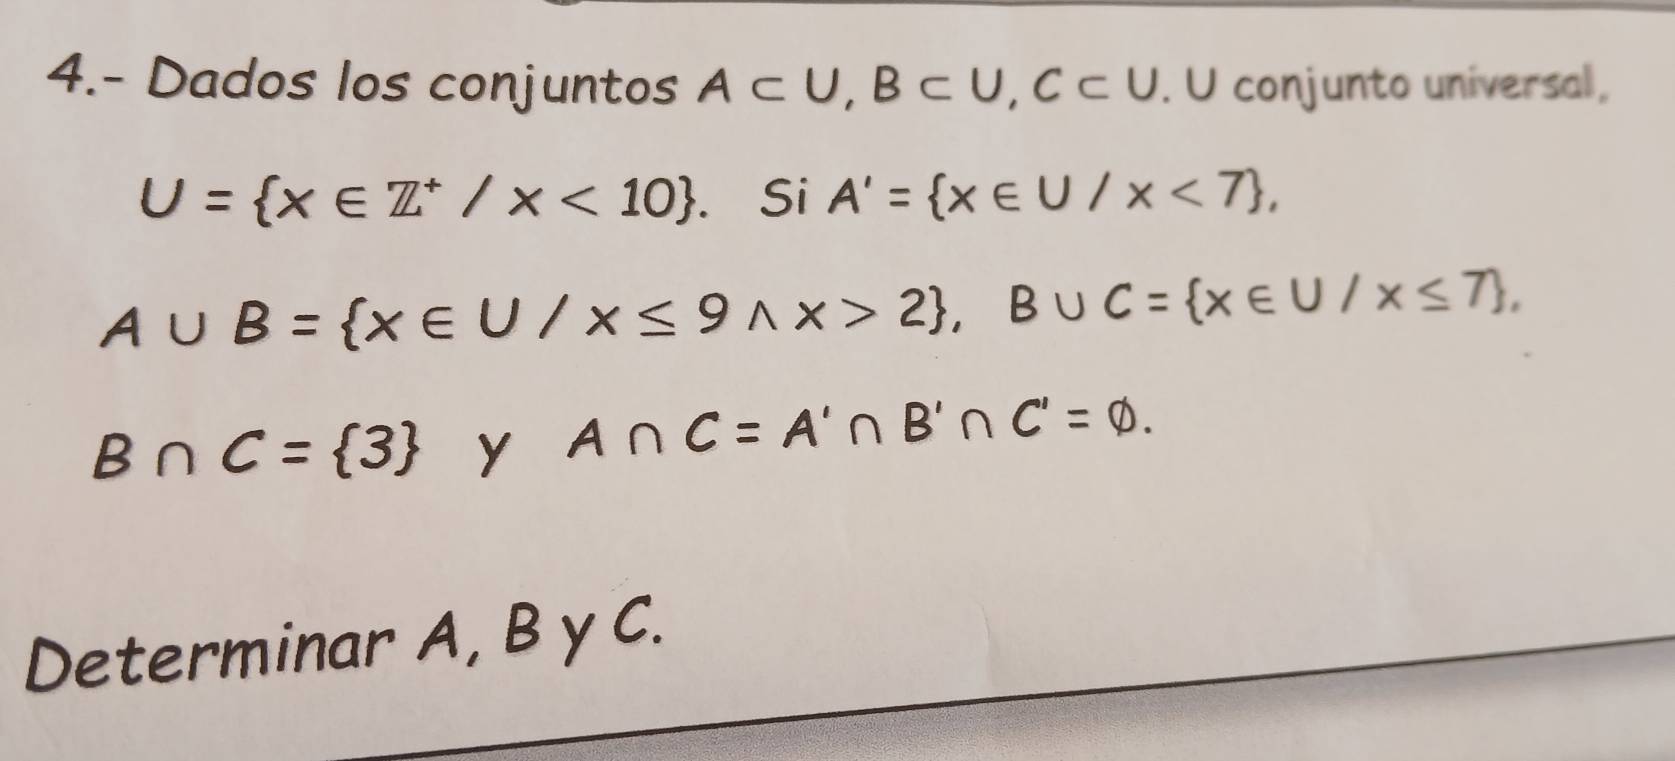 4.- Dados los conjuntos A ⊂ U, B ⊂ U, C ⊂ U. U conjunto universal,
U = {x ∈ ℤ⁺ / x < 10}. Si A' = {x ∈ U / x < 7},
A ∪ B = {x ∈ U / x ≤ 9 ∧ x > 2}, B ∪ C = {x ∈ U / x ≤ 7},
B ∩ C = {3} y A ∩ C = A' ∩ B' ∩ C' = ∅.
Determinar A, B y C.